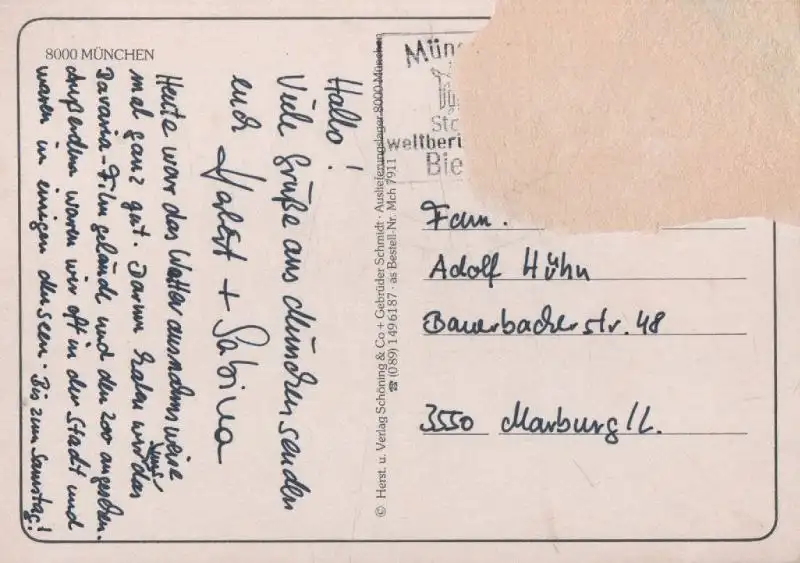 8000 MÜNCHEN
Hallo!
Viele Grüße aus München senden
euch
+ Sabina
Heute war das Wetter ausnahmsweise
mal ganz gut. Darum haben wir uns das
Bavaria-Filmgelände und den Zoo angesehen.
Außerdem waren wir oft in der Stadt und
waren in einigen Museen. Bis zum Samstag!
© Herst. u. Verlag Schöning & Co + Gebrüder Schmidt · Auslieferungslager 8000 München
☎ (089) 1 49 61 87 · as Bestell-Nr. Mch 7911
Münc
Sta
weltberü
Bie
Fam.
Adolf Hühn
Bauerbacherstr. 48
3550 Marburg/L.